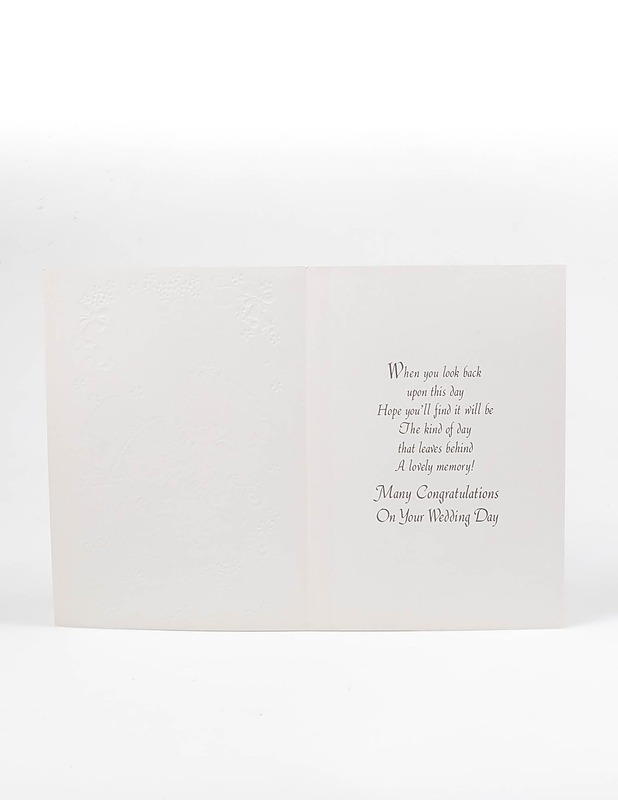 When you look back
upon this day
Hope you'll find it will be
The kind of day
that leaves behind
A lovely memory!
Many Congratulations
On Your Wedding Day